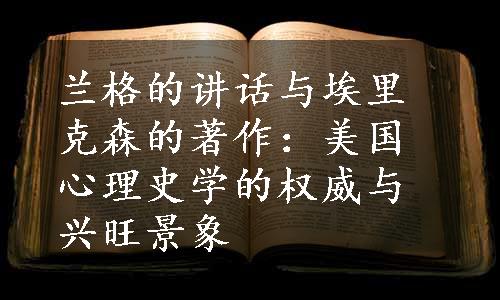 兰格的讲话与埃里
克森的著作：美国
心理史学的权威与
兴旺景象